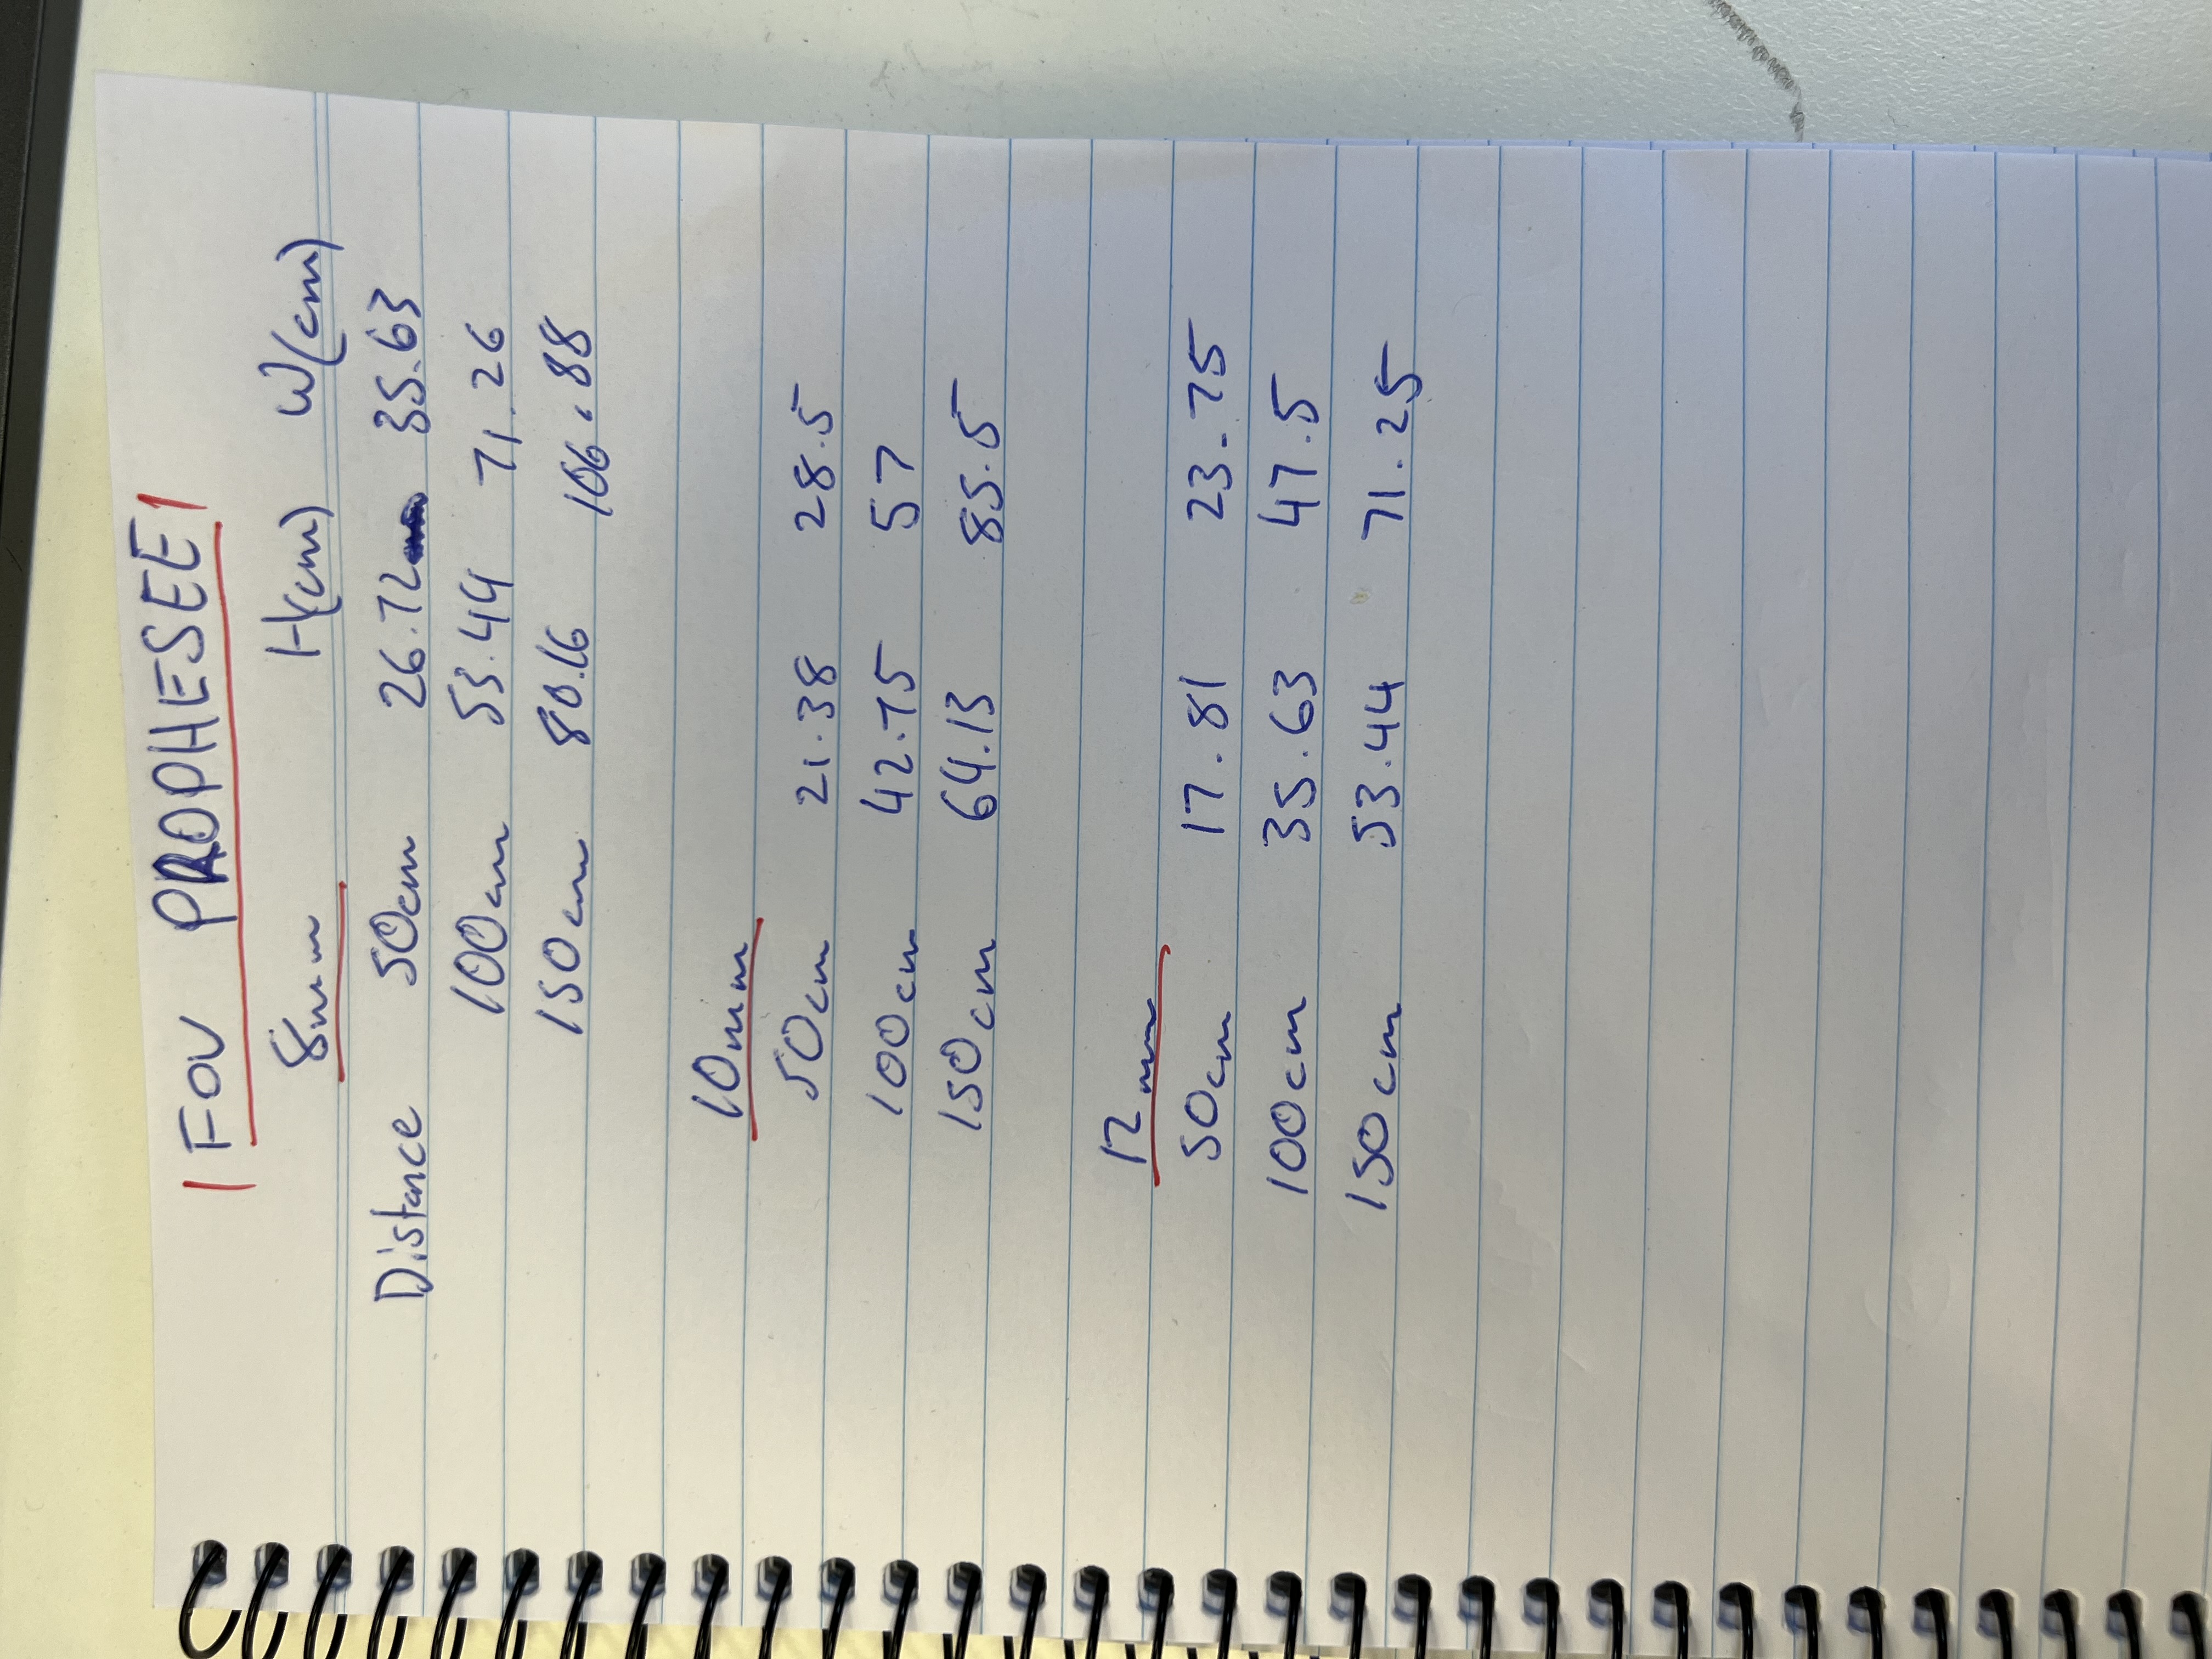 FOV PROPHESEE
8mm H(cm) W(cm)
Distance 50cm 26.72 35.63
100cm 53.44 71.26
150cm 80.16 106.88
10mm
50cm 21.38 28.5
100cm 42.75 57
150cm 64.13 85.5
12mm
50cm 17.81 23.75
100cm 35.63 47.5
150cm 53.44 71.25